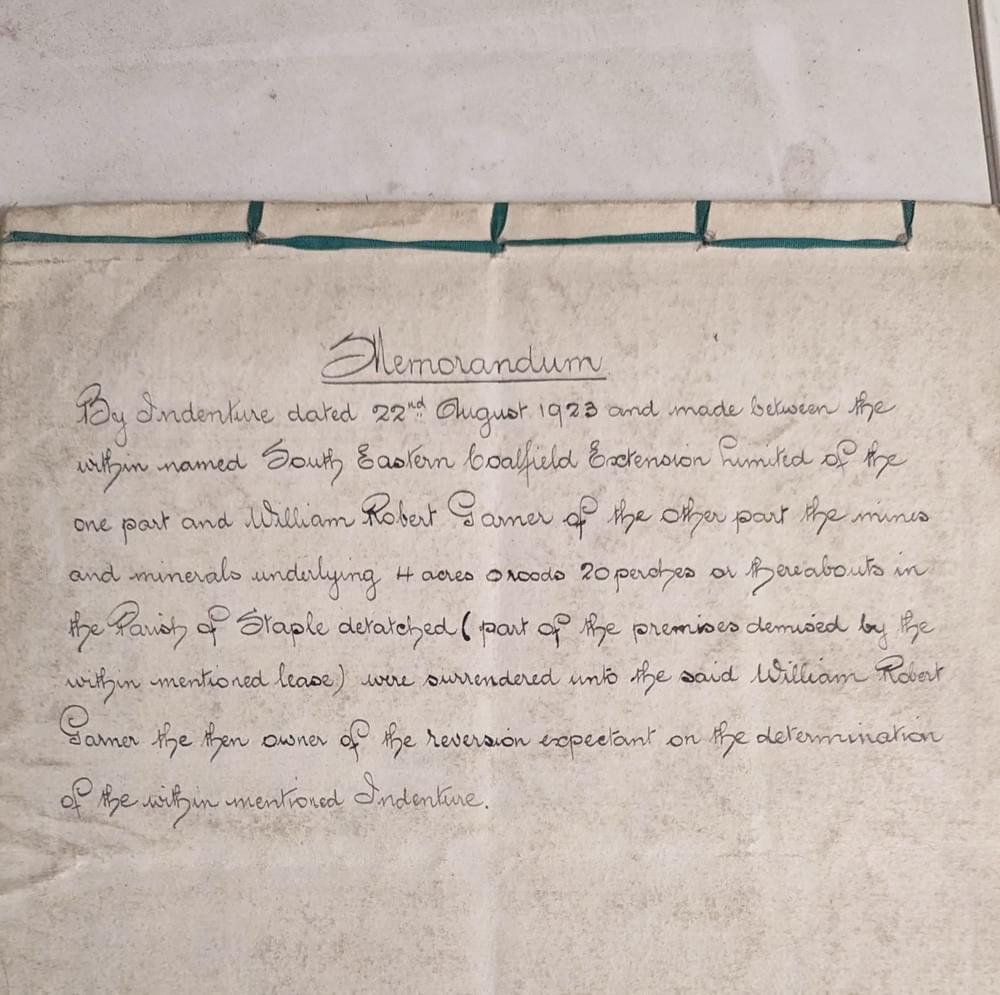 Memorandum
By Indenture dated 22nd August 1923 and made between the
within named South Eastern Coalfield Extension Limited of the
one part and William Robert Garner of the other part the mines
and minerals underlying 4 acres 0 roods 20 perches or thereabouts in
the Parish of Staple detatched (part of the premises demised by the
within mentioned lease) were surrendered unto the said William Robert
Garner the then owner of the reversion expectant on the determination
of the within mentioned Indenture.